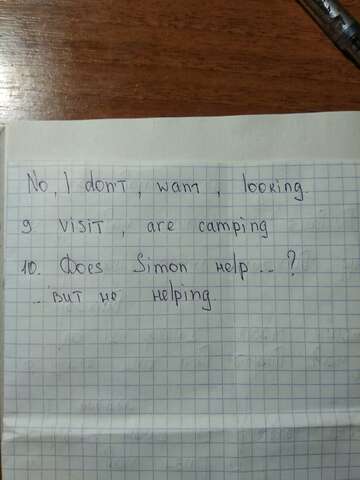 No, I don't, want, looking.
9 visit, are camping
10. Does Simon help...?
.. but he helping